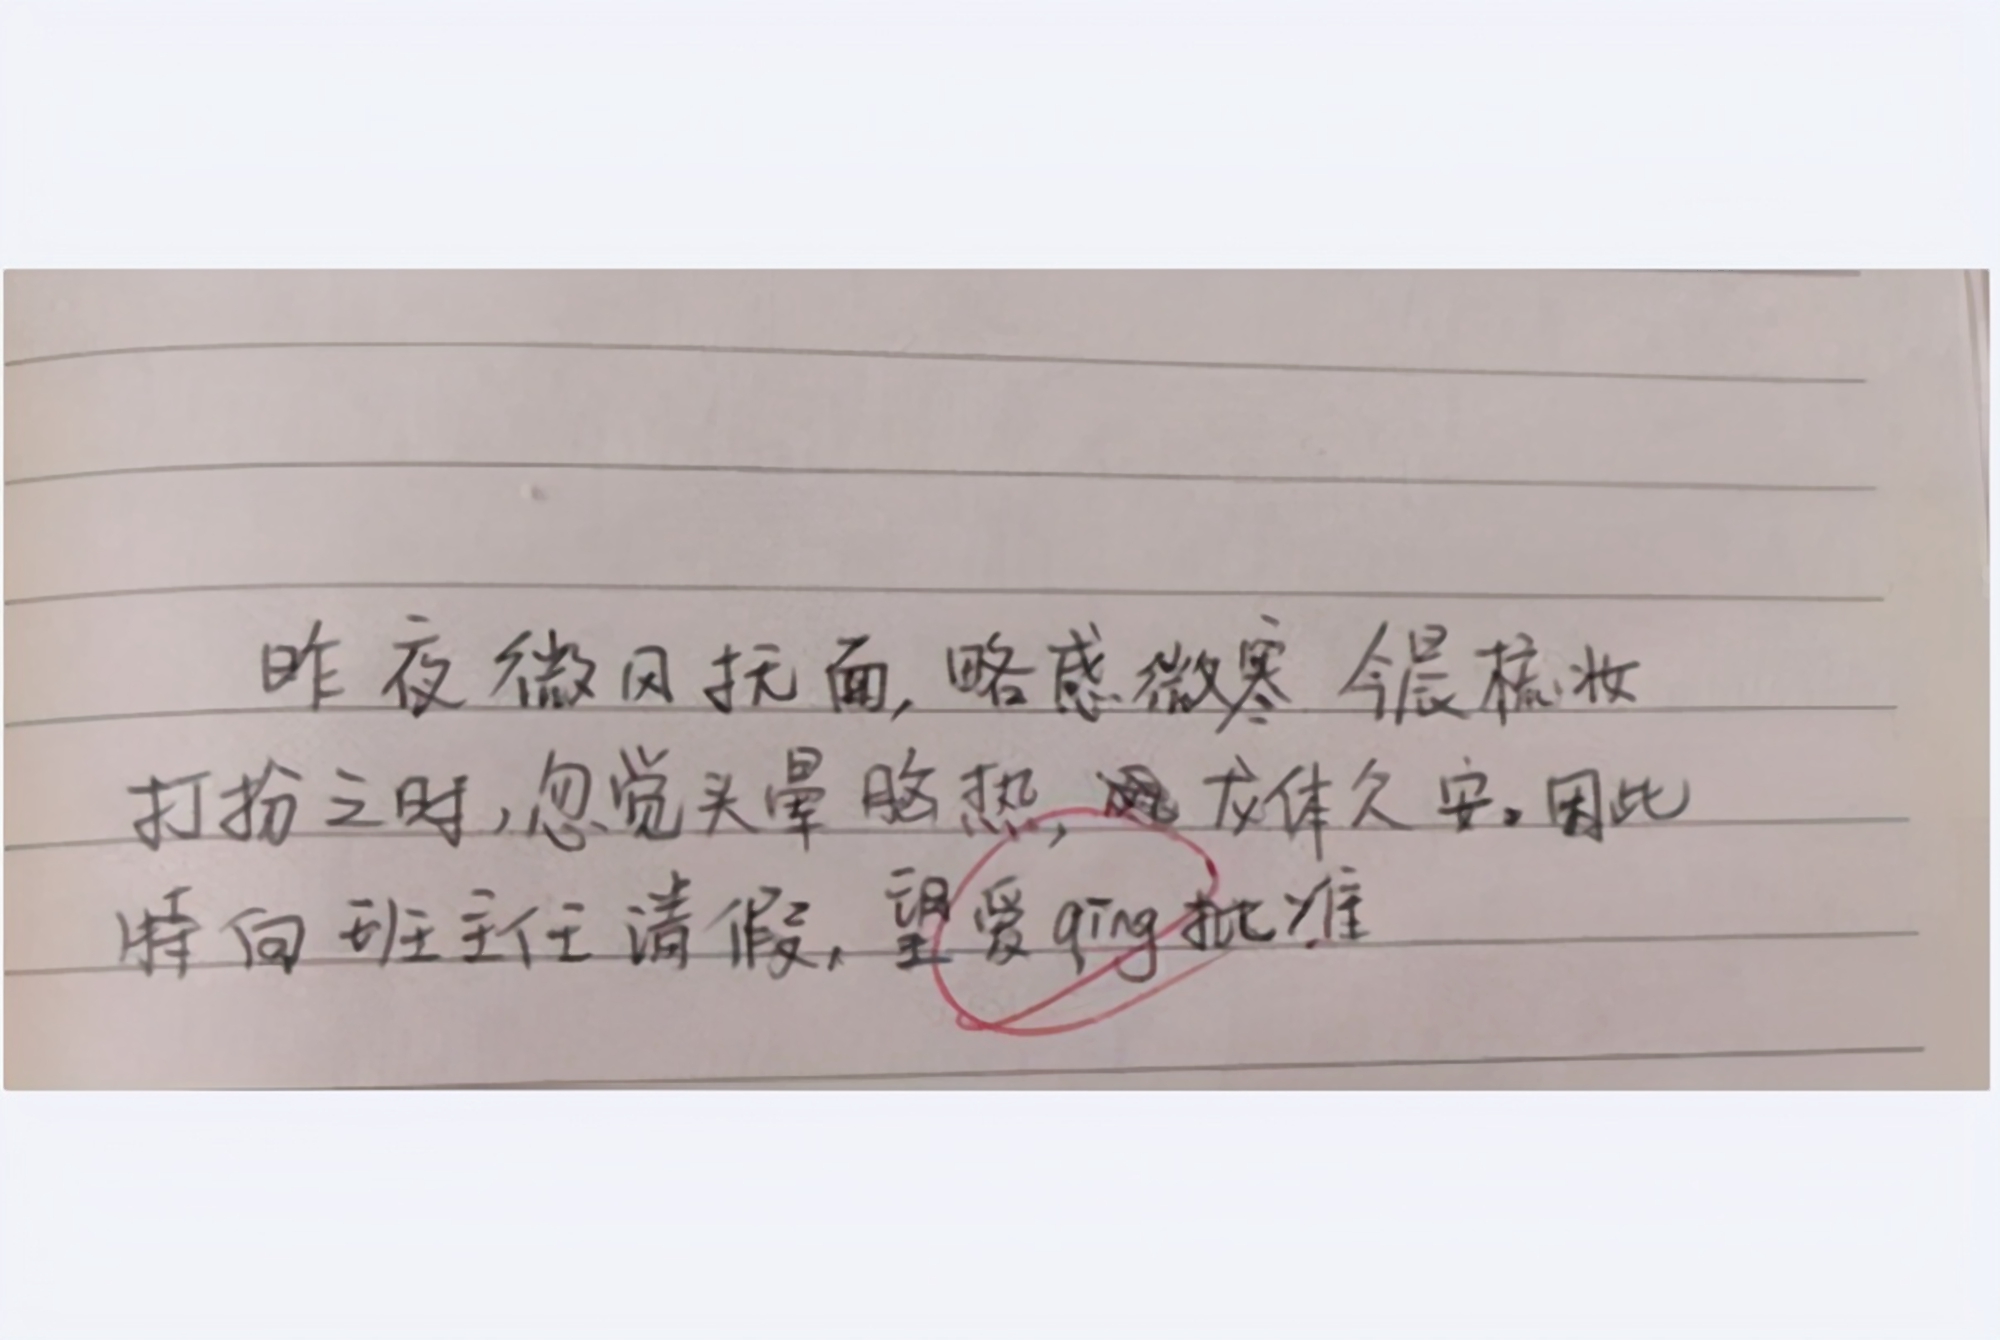 昨夜微风抚面，略感微寒 今晨梳妆
打扮之时，忽觉头晕脑热，龙体久安。因此
特向班主任请假，望爱qīng批准